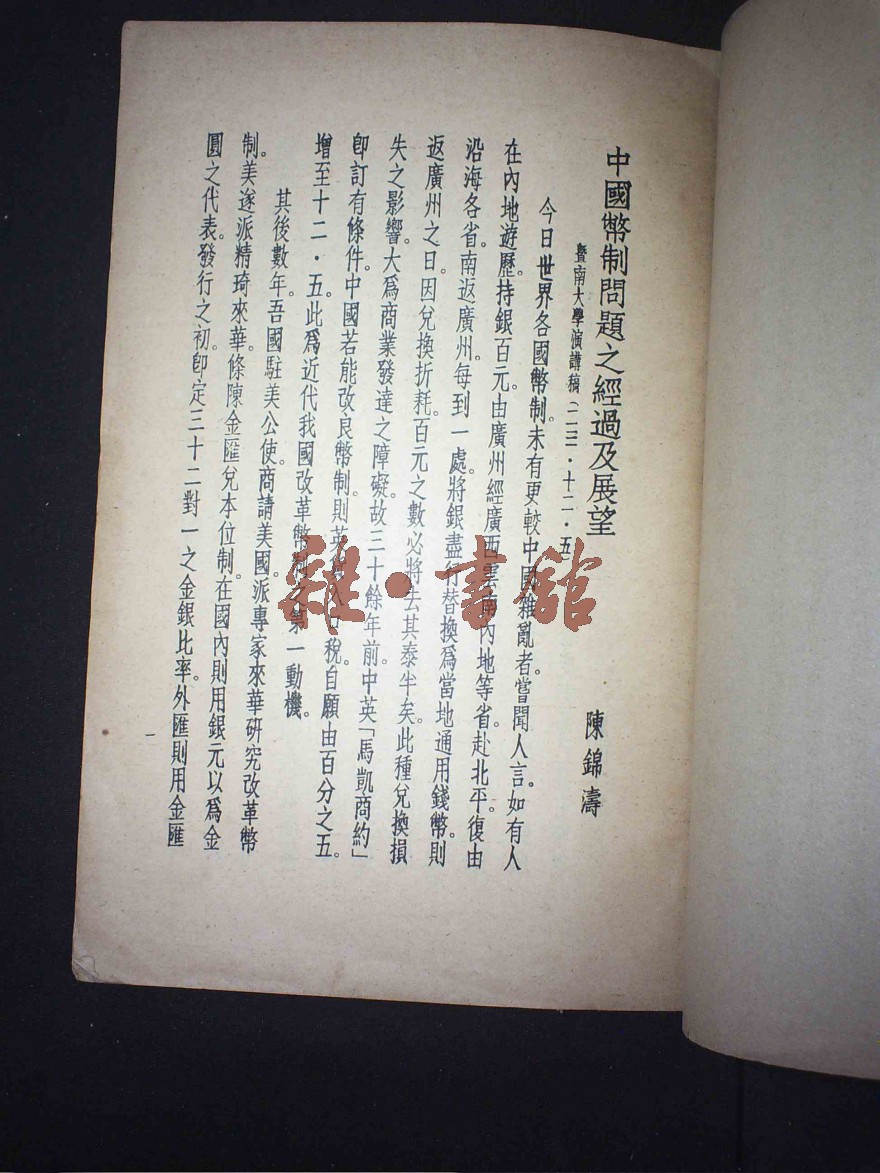 中國幣制問題之經過及展望
暨南大學演講稿(二三·十二·五)
陳錦濤
今日世界各國幣制。未有更較中國雜亂者嘗聞人言。如有人
在內地遊歷。持銀百元。由廣州經廣西雲南內地等省。赴北平。復由
沿海各省。南返廣州。每到一處。將銀盡行替換爲當地通用錢幣。則
返廣州之日。因兌換折耗。百元之數必將去其泰半矣。此種兌換損
失之影響。大爲商業發達之障礙。故三十餘年前。中英「馬凱商約」
卽訂有條件。中國若能改良幣制。則英貨入口稅。自願由百分之五。
增至十二·五。此爲近代我國改革幣制之第一動機。
其後數年。吾國駐美公使。商請美國。派專家來華研究改革幣
制。美遂派精琦來華。條陳金匯兌本位制。在國內則用銀元以爲金
圓之代表。發行之初。卽定三十二對一之金銀比率。外匯則用金匯
一
雜·書館